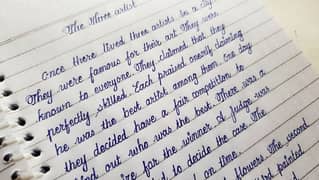 The three artist
Once there lived three artists in a city.
They were famous for their art. They were
known to everyone. They claimed that they
perfectly skilled. Each praised oneself claiming
he was the best artist among them. One day
they decided have a fair competition to
find out who was the best. There was a
for the winner. A judge was
to decide the case. The
on time.
flowers. The second
painted